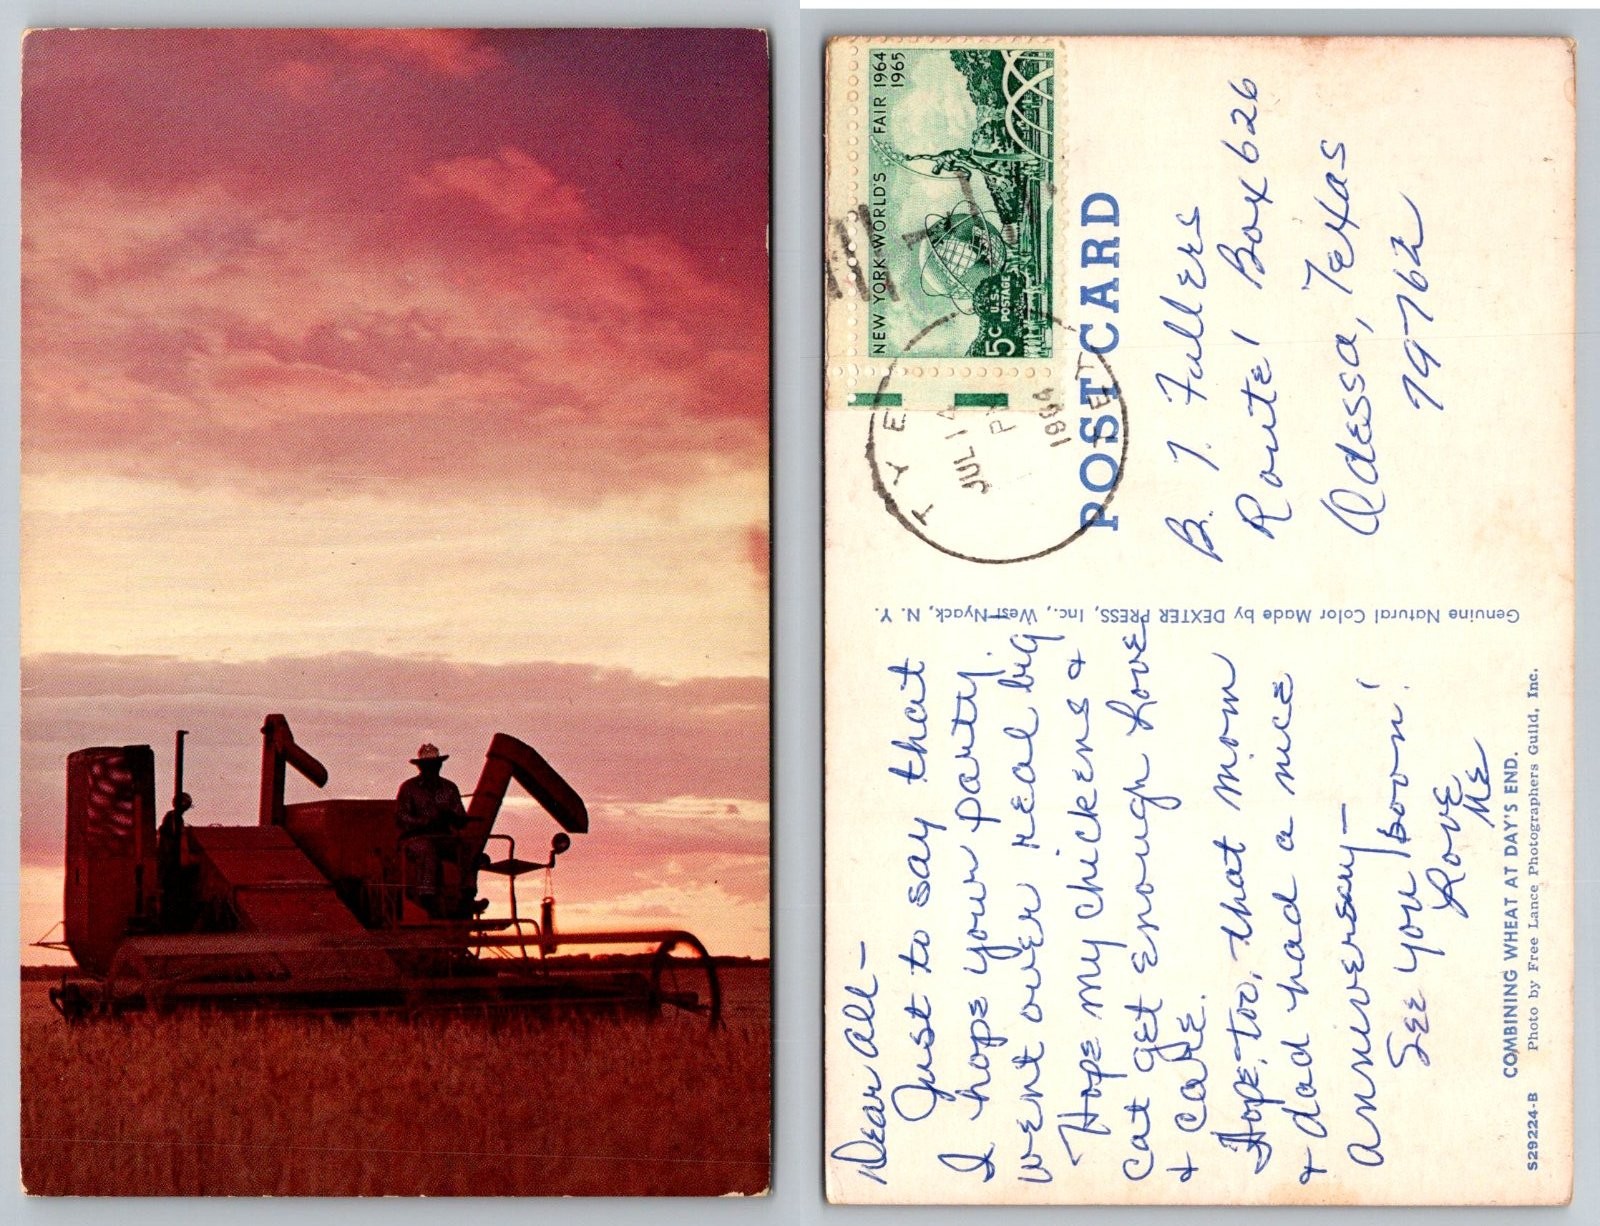 Dear All—
Just to say that
I hope your party
went over real big.
Hope my chickens &
cat get enough Love
& care.
Hope, too, that mom
& dad had a nice
anniversary—
See you soon!
Love
Me
NEW YORK WORLD'S FAIR 1964
1965
5c U.S. POSTAGE
JUL 14
PM
1964
POST CARD
B. T. Fullers
Route 1 Box 626
Odessa, Texas
79762
Genuine Natural Color Made by DEXTER PRESS, Inc., West Nyack, N. Y.
COMBINING WHEAT AT DAY'S END.
S29224-B Photo by Free Lance Photographers Guild, Inc.